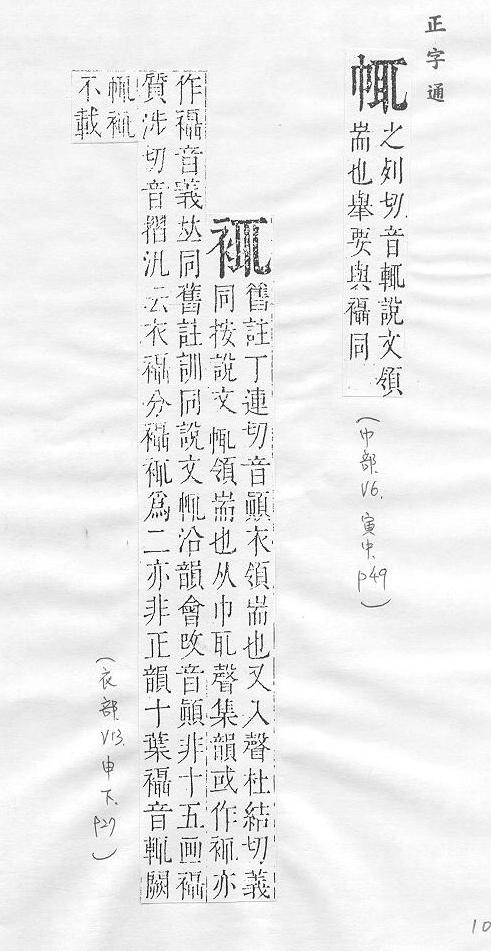 正字通
㡇
之列切音輒說文領
耑也舉要與襵同
(巾部.V6.寅中.P49)
舊註丁連切音顚衣領耑也又入聲杜結切義
同按說文㡇領耑也从巾耴聲集韻或作亦
作襵音義𠀤同舊註訓同說文㡇沿韻會改音顚非十五画襵
質涉切音摺汎云衣襵分襵爲二亦非正韻十葉襵音輒闕
㡇
不載
(衣部.V13.申下.P27)
10